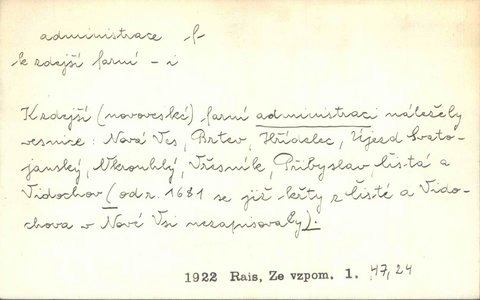 administrace f
k zdejší farní - i
K zdejší (novoveské) farní administraci náležely
vesnice: Nová Ves, Brtev, Hřídelec, Újezd Svato-
janský, Vkrouhlý, Vřesník, Přibyslav, Lis-tá a
Vidochov (od r. 1681 se již křty z Lis-té a Vido-
chova v Nové Vsi nezapisovaly).
1922 Rais, Ze vzpom. 1. 47,24